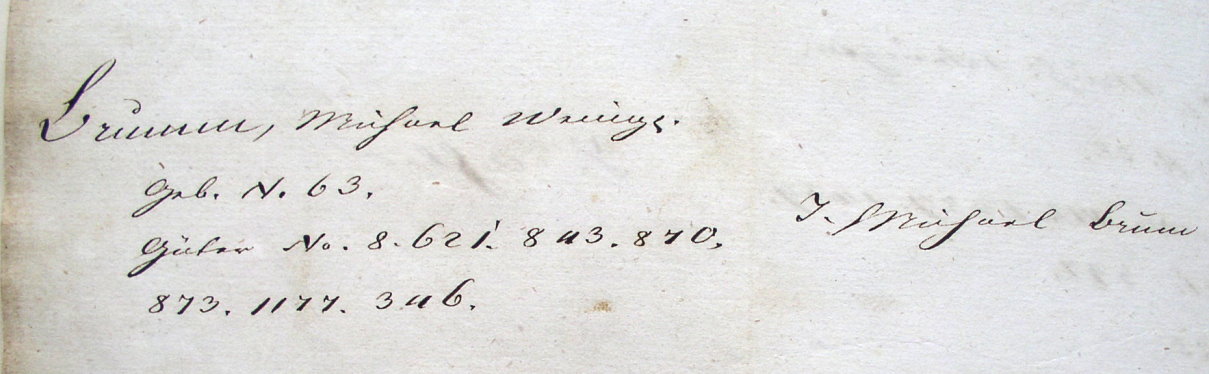 Brumm, Michael Wenigs.
Geb. N. 63.
Güter No. 8. 621. 843. 870.
873. 1177. 346.
J. Michael Brum